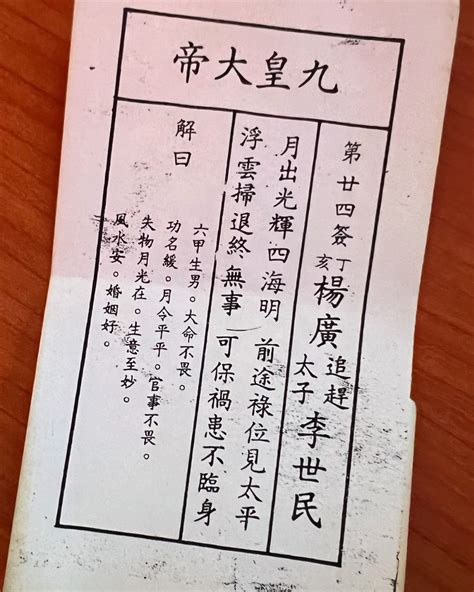 九皇大帝
第廿四簽
丁亥
楊廣追趕太子李世民
月出光輝四海明 前途祿位見太平
浮雲掃退終無事 可保禍患不臨身
解曰
六甲生男。大命不畏。
功名緩。月令平平。官事不畏。
失物月光在。生意至妙。
風水安。婚姻好。